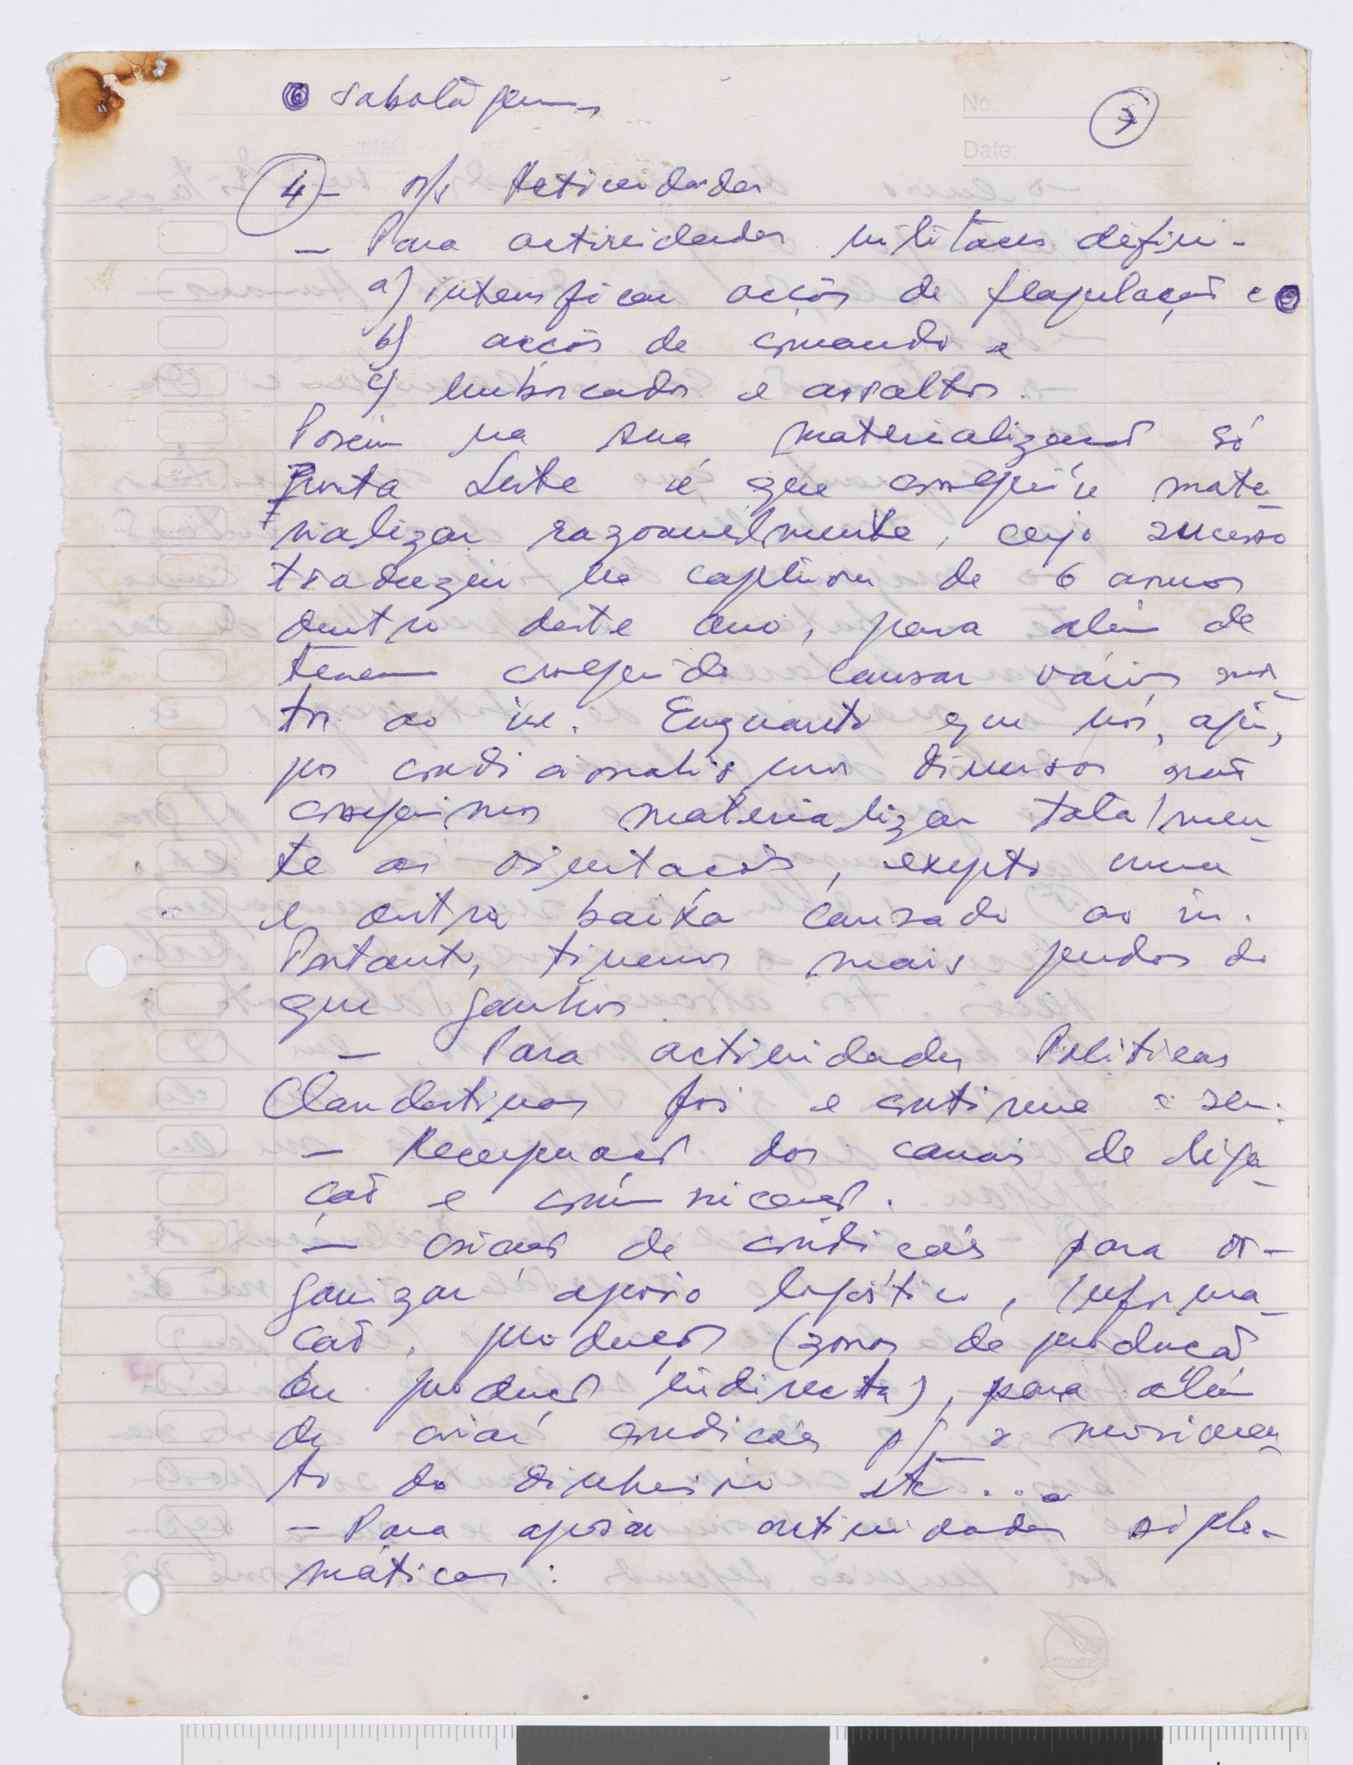 ⑥ sabotagens
No.
7
Date:
4- n/s Actividades
- Para actividades militares defini-
a) intensificar acções de flagelação e ⑥
b) acções de comando e
c) emboscadas e assaltos.
Porém na sua materialização só
Ponta Leste é que conseguiu mate-
rializar razoavelmente, cujo sucesso
traduziu na captura de 6 armas
dentro deste ano, para além de
terem conseguido causar vários mor-
tos ao in. Enquanto que nós, aqui,
por condicionalismos diversos não
conseguimos materializar totalmen-
te as orientações, exepto uma
e outra baixa causado ao in.
Portanto, tivemos mais perdas do
que ganhos.
- Para actividades Politicas
Clandestinas foi e continue a ser:
- Recuperação dos canais de liga-
ção e comunicação.
- criação de condições para or-
ganizar apoio logístico, informa-
ção, produção (zonas de produção
ou produção indirecta), para além
de criar condições p/ o movimen-
to do dinheiro etc...
- Para apoiar actividades diplo-
máticas: